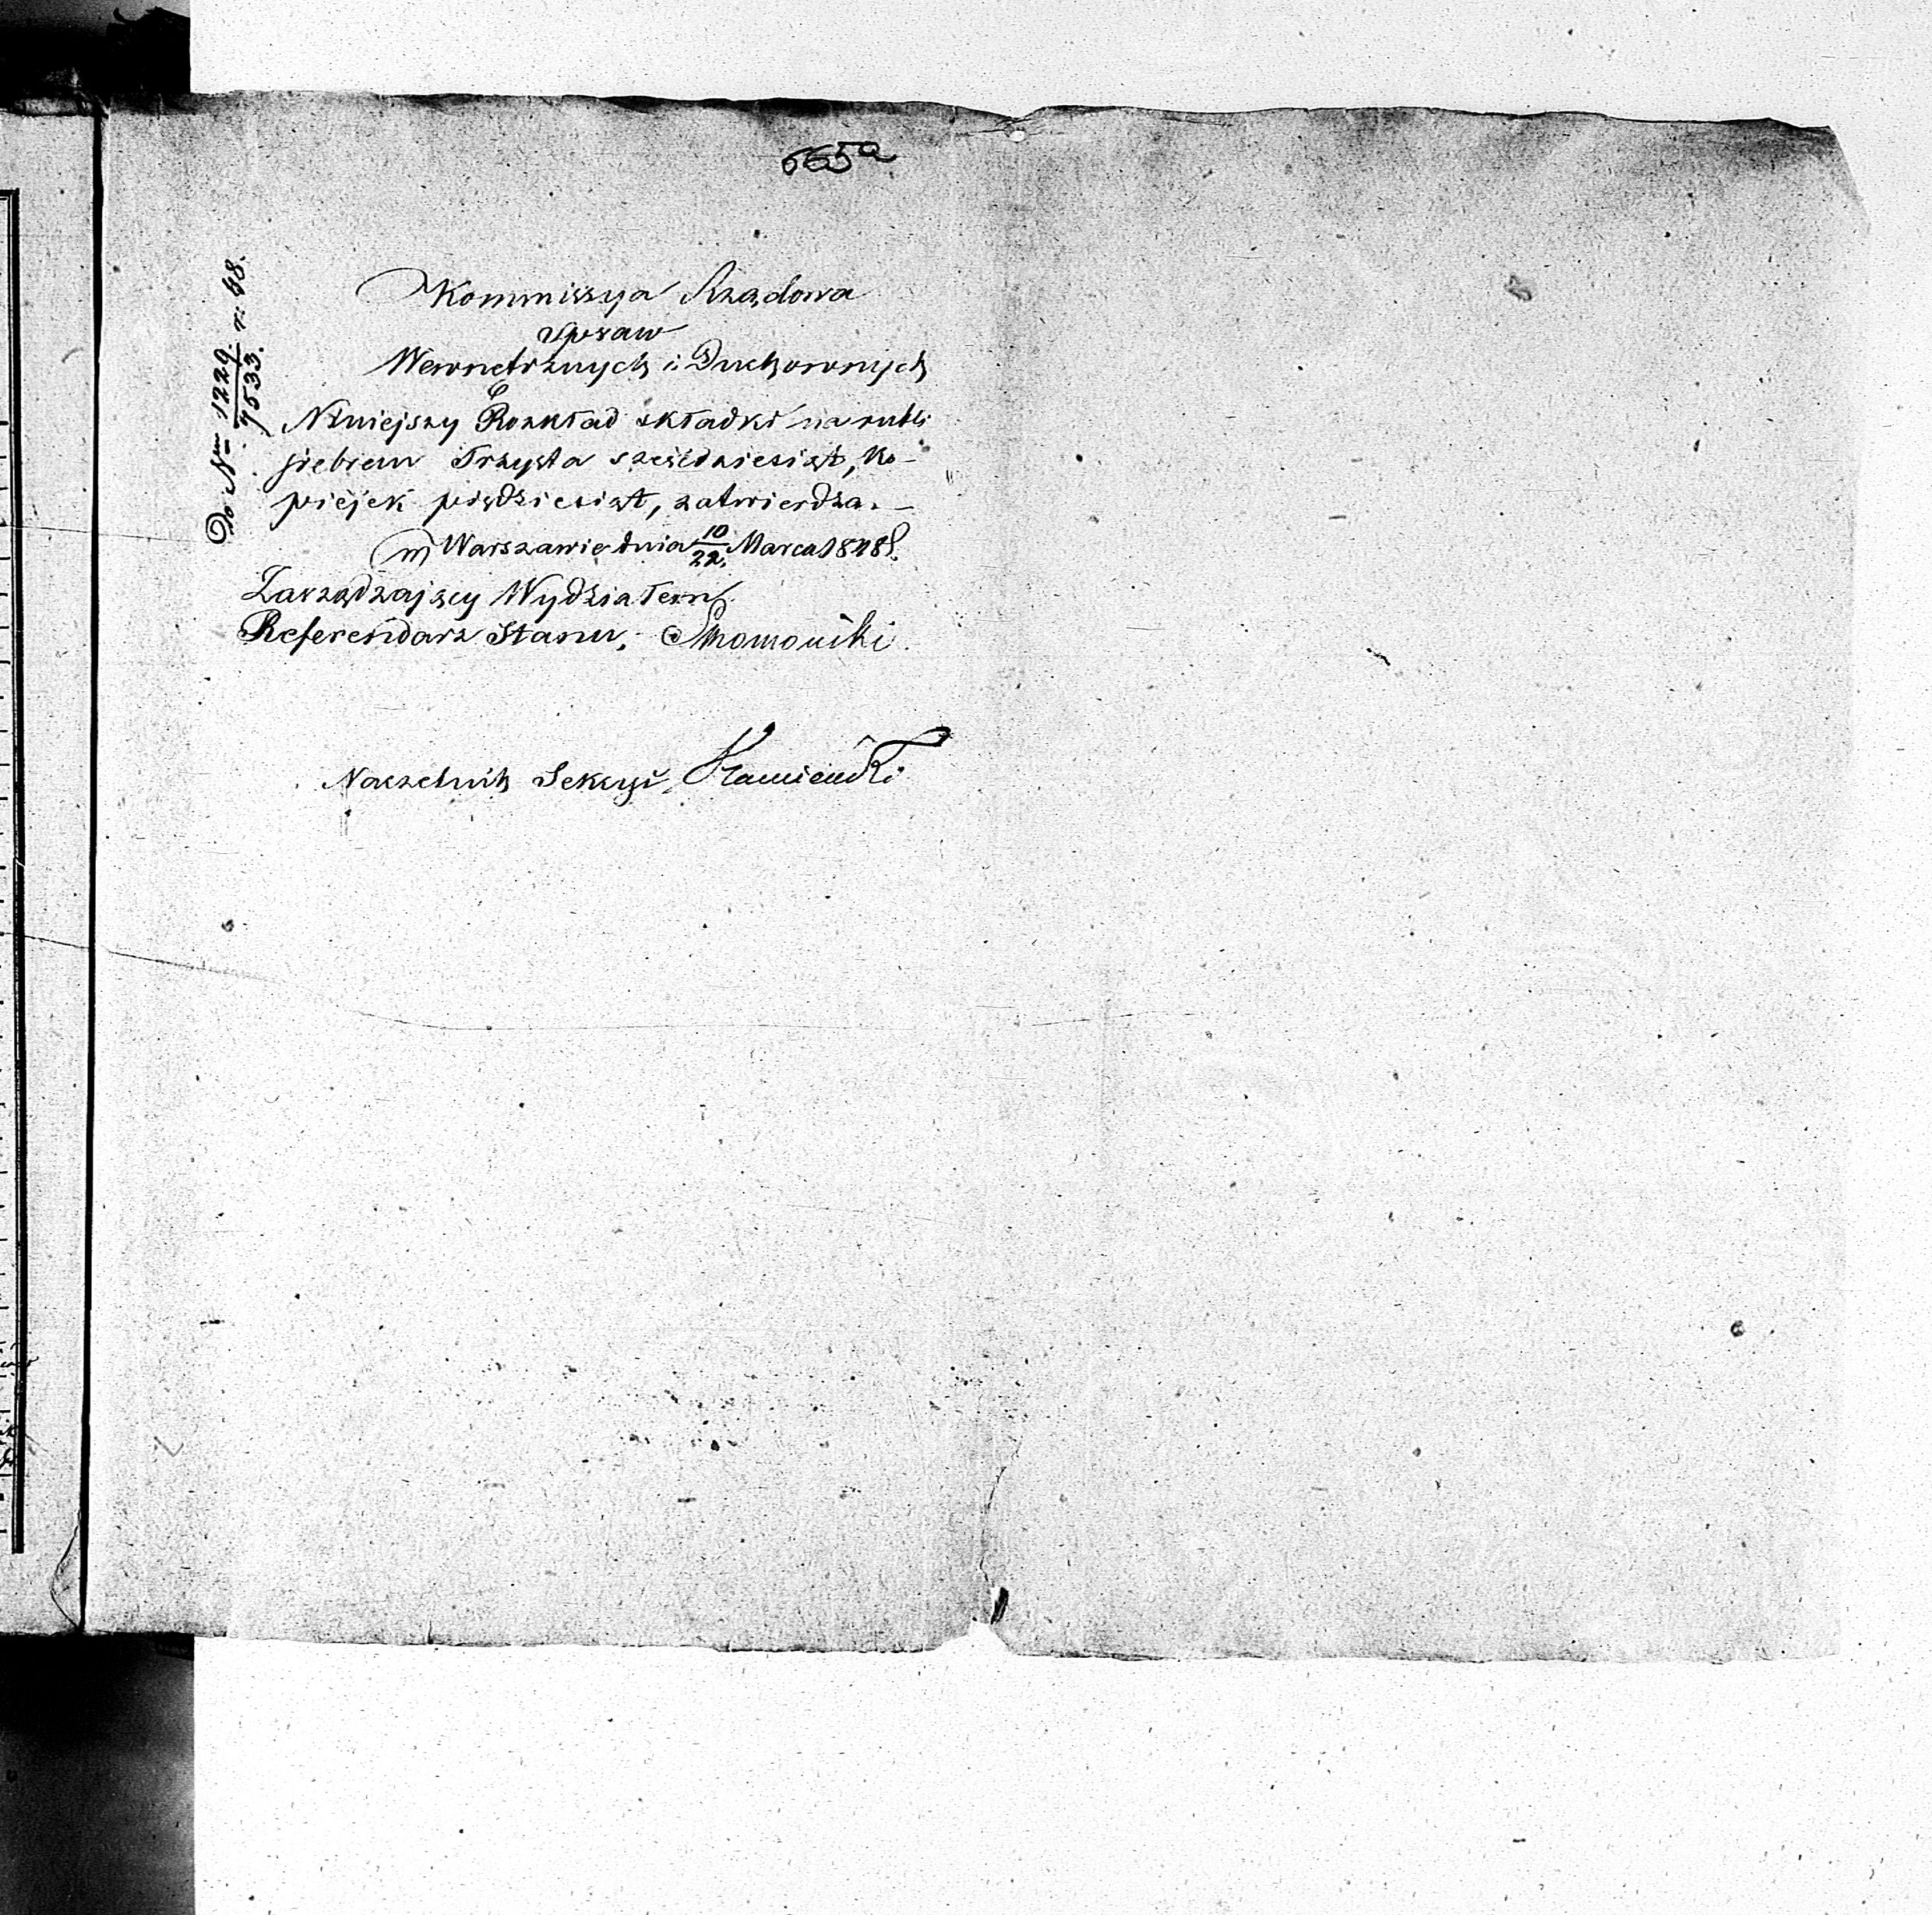 665a
Do Nru 1229./7533. r: 48.
Kommissya Rządowa
Spraw
Wewnetrznych i Duchownych
Niniejszy Rozkład składki na rubli
srebrem Trzysta sześćdziesiąt, ko-
piejek pięćdziesiąt, zatwierdza. -
w Warszawie dnia 10/22. Marca 1848 r.
Zarządzający Wydziałem
Referendarz Stanu,
Naczelnik Sekcyi, Kamieński